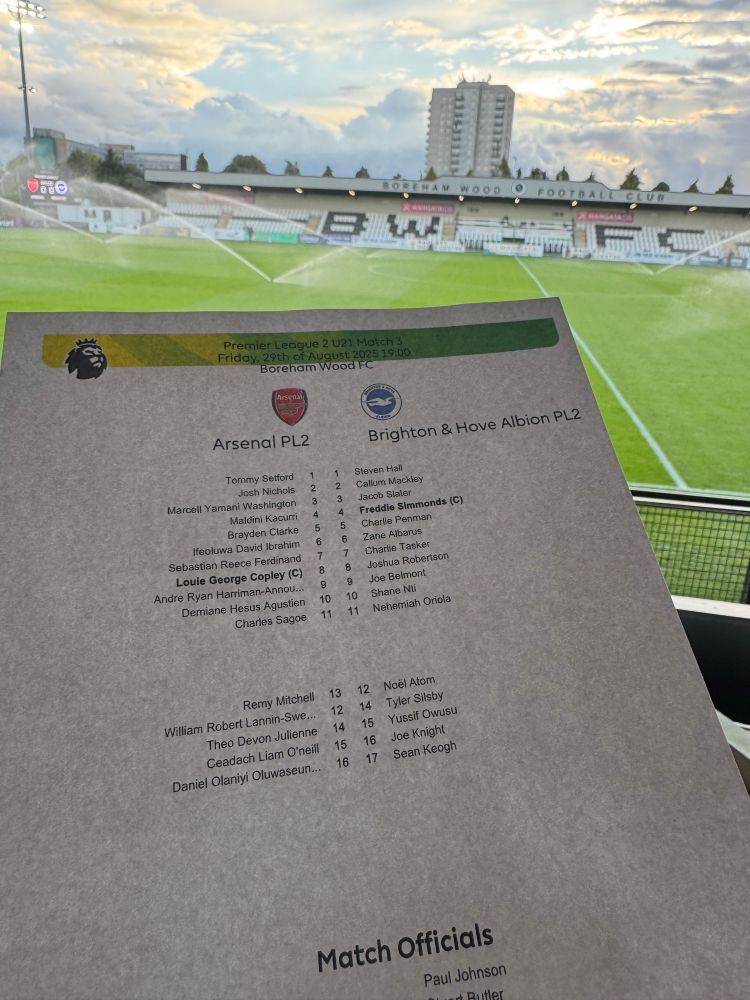 BOREHAM WOOD FOOTBALL CLUB
B W F C
Premier League 2 U21 Match 3
Friday, 29th of August 2025 19:00
Boreham Wood FC
Arsenal
Arsenal PL2 Brighton & Hove Albion PL2
Tommy Setford 1 1 Steven Hall
Josh Nichols 2 2 Callum Mackley
Marcell Yamani Washington 3 3 Jacob Slater
Maldini Kacurri 4 4 Freddie Simmonds (C)
Brayden Clarke 5 5 Charlie Penman
Ifeoluwa David Ibrahim 6 6 Zane Albarus
Sebastian Reece Ferdinand 7 7 Charlie Tasker
Louie George Copley (C) 8 8 Joshua Robertson
Andre Ryan Harriman-Annou... 9 9 Joe Belmont
Demiane Hesus Agustien 10 10 Shane Nti
Charles Sagoe 11 11 Nehemiah Oriola
Remy Mitchell 13 12 Noël Atom
William Robert Lannin-Swe... 12 14 Tyler Silsby
Theo Devon Julienne 14 15 Yussif Owusu
Ceadach Liam O'neill 15 16 Joe Knight
Daniel Olaniyi Oluwaseun... 16 17 Sean Keogh
Match Officials
Paul Johnson
Stuart Butler